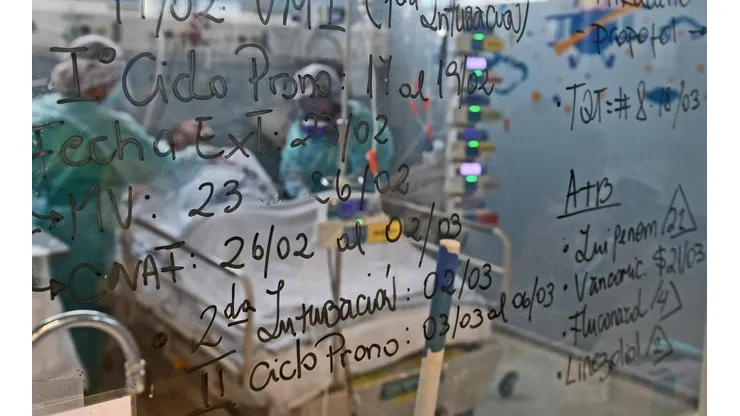 11/02 VMI (1ra Intubación)
I° Ciclo Prono: 17 al 19/02
Fecha Ext: 23/02
→ MV: 23 26/02
→ CNAF: 26/02 al 02/03
• 2da Intubación: 02/03
II Ciclo Prono: 03/03 al 06/03
- Propofol →
• TQT: # 8 - 18/03
ATB
• Imipenem /21
• Vancomic. 21/03
• Fluconazol /4
• Linezolid /2